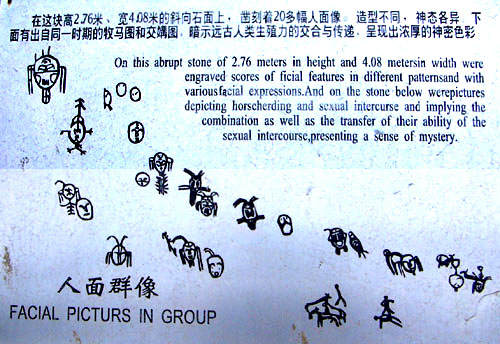 在这块高2.76米、宽4.08米的斜向石面上，凿刻着20多幅人面像。造型不同，神态各异。下
面有出自同一时期的牧马图和交媾图。暗示远古人类生殖力的交合与传递，呈现出浓厚的神密色彩
On this abrupt stone of 2.76 meters in height and 4.08 metersin width were
engraved scores of ficial features in different patternsand with
variousfacial expressions.And on the stone below werepictures
depicting horscherding and sexual intercurse and implying the
combination as well as the transfer of their ability of the
sexual intercourse,presenting a sense of mystery.
人面群像
FACIAL PICTURS IN GROUP